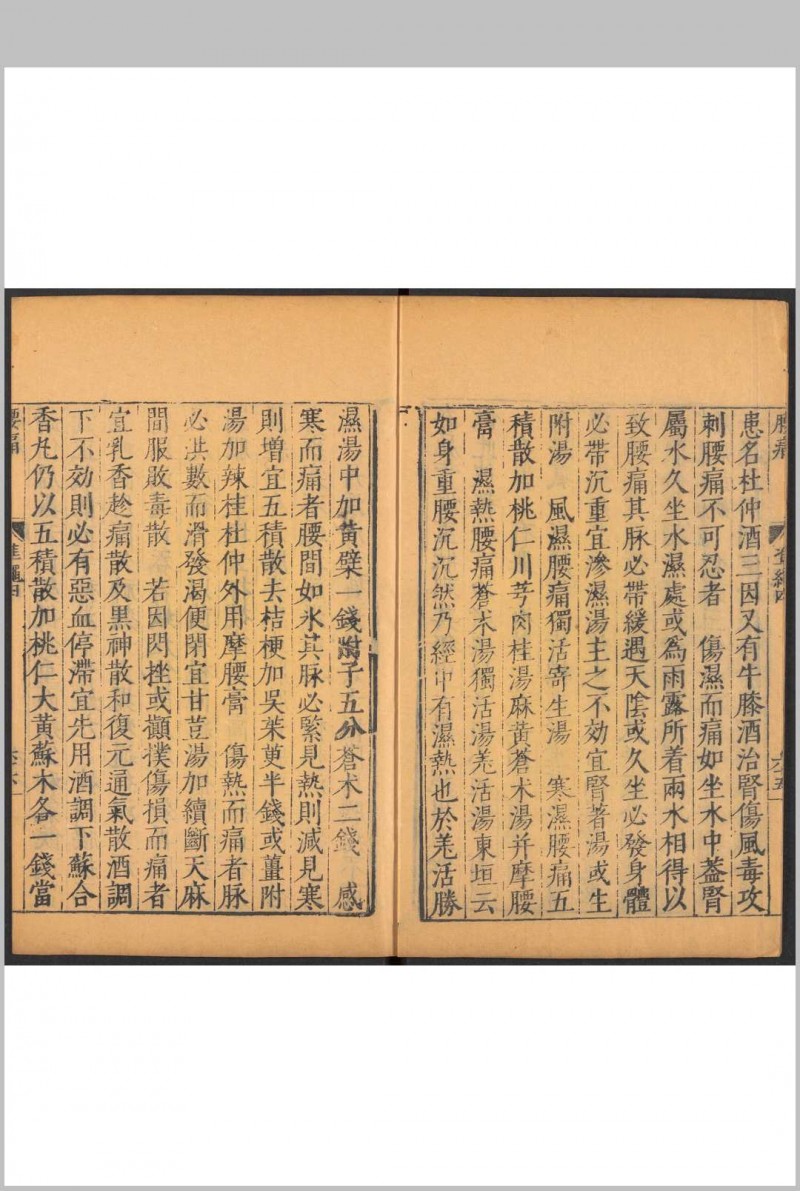 患名杜仲酒三因又有牛膝酒治腎傷風毒攻
刺腰痛不可忍者　傷濕而痛如坐水中蓋腎
屬水久坐水濕處或為雨露所着雨水相得以
致腰痛其脉必帶緩遇天陰或久坐必發身體
必帶沉重宜滲濕湯主之不効宜腎著湯或生
附湯　風濕腰痛獨活寄生湯　寒濕腰痛五
積散加桃仁川芎肉桂湯麻黃蒼术湯并摩腰
膏　濕熱腰痛蒼术湯獨活湯羗活湯東垣云
如身重腰沉沉然乃經中有濕熱也於羗活勝
濕湯中加黃蘗一錢附子五分蒼术二錢　感
寒而痛者腰間如氷其脉必緊見熱則減見寒
則增宜五積散去桔梗加吳茱萸半錢或薑附
湯加辣桂杜仲外用摩腰膏　傷熱而痛者脉
必洪數而滑發渴便閉宜甘荳湯加續斷天麻
間服敗毒散　若因閃挫或顚撲傷損而痛者
宜乳香趁痛散及黒神散和復元通氣散酒調
下不効則必有惡血停滯宜先用酒調下蘇合
香丸仍以五積散加桃仁大黃蘇木各一錢當
腰痛